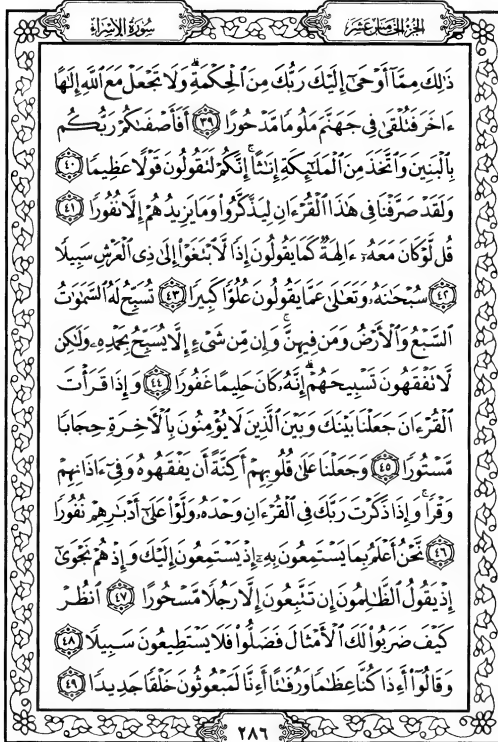 سُورَةُ الإِسْرَاءِ الجُزْءُ الخَامِسَ عَشَرَ
ذَٰلِكَ مِمَّآ أَوْحَىٰٓ إِلَيْكَ رَبُّكَ مِنَ ٱلْحِكْمَةِ ۗ وَلَا تَجْعَلْ مَعَ ٱللَّهِ إِلَٰهًا
ءَاخَرَ فَتُلْقَىٰ فِى جَهَنَّمَ مَلُومًا مَّدْحُورًا ٣٩ أَفَأَصْفَىٰكُمْ رَبُّكُم
بِٱلْبَنِينَ وَٱتَّخَذَ مِنَ ٱلْمَلَٰٓئِكَةِ إِنَٰثًا ۚ إِنَّكُمْ لَتَقُولُونَ قَوْلًا عَظِيمًا ٤٠
وَلَقَدْ صَرَّفْنَا فِى هَٰذَا ٱلْقُرْءَانِ لِيَذَّكَّرُوا۟ وَمَا يَزِيدُهُمْ إِلَّا نُفُورًا ٤١
قُل لَّوْ كَانَ مَعَهُۥٓ ءَالِهَةٌ كَمَا يَقُولُونَ إِذًا لَّٱبْتَغَوْا۟ إِلَىٰ ذِى ٱلْعَرْشِ سَبِيلًا
٤٢ سُبْحَٰنَهُۥ وَتَعَٰلَىٰ عَمَّا يَقُولُونَ عُلُوًّا كَبِيرًا ٤٣ تُسَبِّحُ لَهُ ٱلسَّمَٰوَٰتُ
ٱلسَّبْعُ وَٱلْأَرْضُ وَمَن فِيهِنَّ ۚ وَإِن مِّن شَىْءٍ إِلَّا يُسَبِّحُ بِحَمْدِهِۦ وَلَٰكِن
لَّا تَفْقَهُونَ تَسْبِيحَهُمْ ۗ إِنَّهُۥ كَانَ حَلِيمًا غَفُورًا ٤٤ وَإِذَا قَرَأْتَ
ٱلْقُرْءَانَ جَعَلْنَا بَيْنَكَ وَبَيْنَ ٱلَّذِينَ لَا يُؤْمِنُونَ بِٱلْءَاخِرَةِ حِجَابًا
مَّسْتُورًا ٤٥ وَجَعَلْنَا عَلَىٰ قُلُوبِهِمْ أَكِنَّةً أَن يَفْقَهُوهُ وَفِىٓ ءَاذَانِهِمْ
وَقْرًا ۚ وَإِذَا ذَكَرْتَ رَبَّكَ فِى ٱلْقُرْءَانِ وَحْدَهُۥ وَلَّوْا۟ عَلَىٰٓ أَدْبَٰرِهِمْ نُفُورًا
٤٦ نَّحْنُ أَعْلَمُ بِمَا يَسْتَمِعُونَ بِهِۦٓ إِذْ يَسْتَمِعُونَ إِلَيْكَ وَإِذْ هُمْ نَجْوَىٰٓ
إِذْ يَقُولُ ٱلظَّٰلِمُونَ إِن تَتَّبِعُونَ إِلَّا رَجُلًا مَّسْحُورًا ٤٧ ٱنظُرْ
كَيْفَ ضَرَبُوا۟ لَكَ ٱلْأَمْثَالَ فَضَلُّوا۟ فَلَا يَسْتَطِيعُونَ سَبِيلًا ٤٨
وَقَالُوٓا۟ أَءِذَا كُنَّا عِظَٰمًا وَرُفَٰتًا أَءِنَّا لَمَبْعُوثُونَ خَلْقًا جَدِيدًا ٤٩
٢٨٦